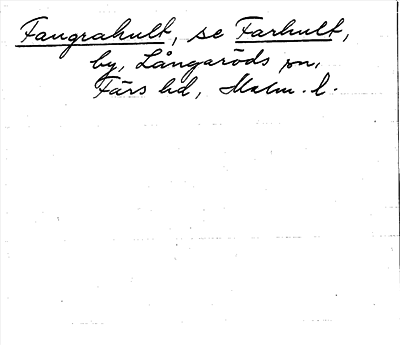 Fangrahult, se Farhult,
by, Långaröds sn,
Färs hd, Malm. l.